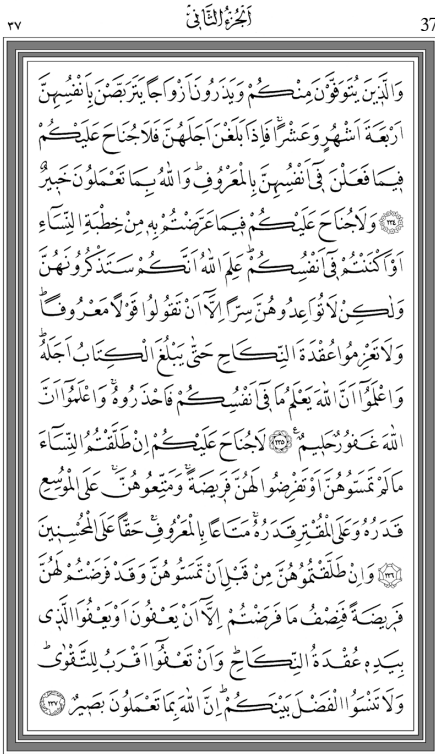 ٣٧ اَلْجُزْءُ الثَّانِي 37
وَالَّذِينَ يُتَوَفَّوْنَ مِنْكُمْ وَيَذَرُونَ اَزْوَاجًا يَتَرَبَّصْنَ بِاَنْفُسِهِنَّ
اَرْبَعَةَ اَشْهُرٍ وَعَشْرًاۚ فَاِذَا بَلَغْنَ اَجَلَهُنَّ فَلَا جُنَاحَ عَلَيْكُمْ
فِيمَا فَعَلْنَ فِٓى اَنْفُسِهِنَّ بِالْمَعْرُوفِۜ وَاللّٰهُ بِمَا تَعْمَلُونَ خَبِيرٌ
﴿٢٣٤﴾ وَلَا جُنَاحَ عَلَيْكُمْ فِيمَا عَرَّضْتُمْ بِهِ مِنْ خِطْبَةِ النِّسَٓاءِ
اَوْ اَكْنَنْتُمْ فِٓى اَنْفُسِكُمْۜ عَلِمَ اللّٰهُ اَنَّكُمْ سَتَذْكُرُونَهُنَّ
وَلٰكِنْ لَا تُوَاعِدُوهُنَّ سِرًّا اِلَّٓا اَنْ تَقُولُوا قَوْلًا مَعْرُوفًاۜ
وَلَا تَعْزِمُوا عُقْدَةَ النِّكَاحِ حَتّٰى يَبْلُغَ الْكِتَابُ اَجَلَهُۜ
وَاعْلَمُٓوا اَنَّ اللّٰهَ يَعْلَمُ مَا فِٓى اَنْفُسِكُمْ فَاحْذَرُوهُۚ وَاعْلَمُٓوا اَنَّ
اللّٰهَ غَفُورٌ حَلِيمٌ۟ ﴿٢٣٥﴾ لَا جُنَاحَ عَلَيْكُمْ اِنْ طَلَّقْتُمُ النِّسَٓاءَ
مَا لَمْ تَمَسُّوهُنَّ اَوْ تَفْرِضُوا لَهُنَّ فَرِيضَةًۚ وَمَتِّعُوهُنَّۚ عَلَى الْمُوسِعِ
قَدَرُهُ وَعَلَى الْمُقْتِرِ قَدَرُهُۚ مَتَاعًا بِالْمَعْرُوفِۚ حَقًّا عَلَى الْمُحْسِنِينَ
﴿٢٣٦﴾ وَاِنْ طَلَّقْتُمُوهُنَّ مِنْ قَبْلِ اَنْ تَمَسُّوهُنَّ وَقَدْ فَرَضْتُمْ لَهُنَّ
فَرِيضَةً فَنِصْفُ مَا فَرَضْتُمْ اِلَّٓا اَنْ يَعْفُونَ اَوْ يَعْفُوَا الَّذِى
بِيَدِهِ عُقْدَةُ النِّكَاحِۜ وَاَنْ تَعْفُٓوا اَقْرَبُ لِلتَّقْوٰىۜ
وَلَا تَنْسَوُا الْفَضْلَ بَيْنَكُمْۜ اِنَّ اللّٰهَ بِمَا تَعْمَلُونَ بَصِيرٌ ﴿٢٣٧﴾